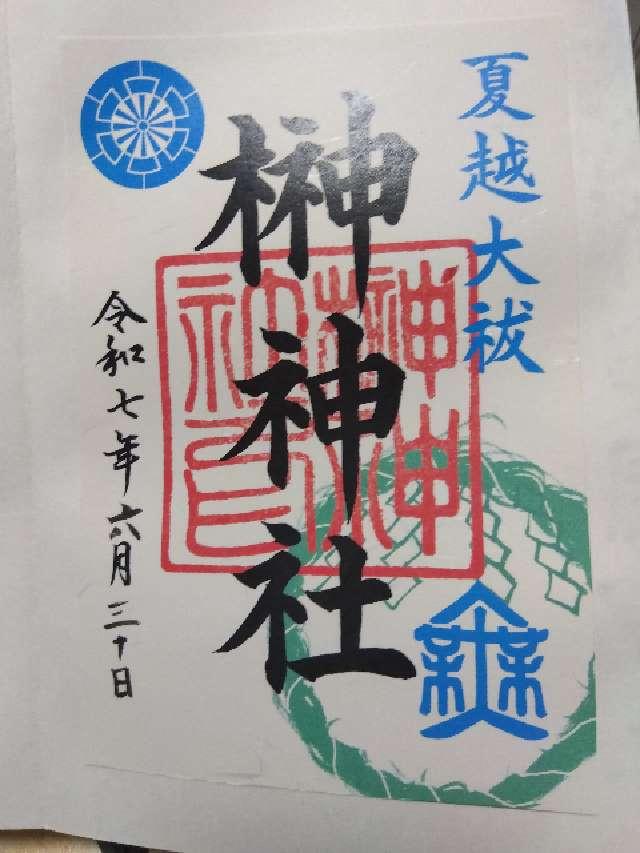 夏越大祓
榊神社
令和七年六月三十日